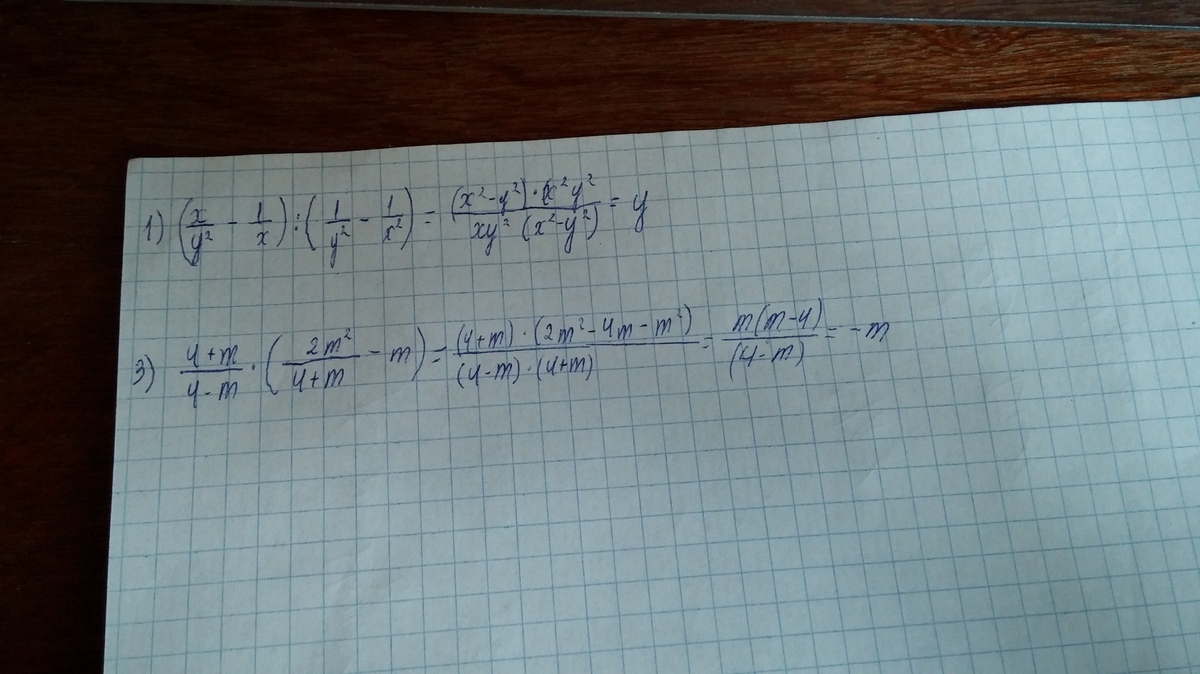 1) (x/y² - 1/x) : (1/y² - 1/x²) = (x²-y²)·x²y² / xy² (x²-y²) = y
3) 4+m/4-m · (2m²/4+m - m) = (4+m)·(2m²-4m-m²) / (4-m)·(4+m) = m(m-4)/(4-m) = -m